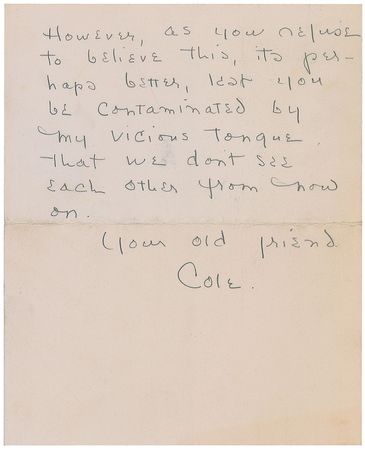 However, as you refuse
to believe this, its per-
haps better, lest you
be contaminated by
my vicious tongue
that we dont see
each other from now
on.
Your old friend
Cole.